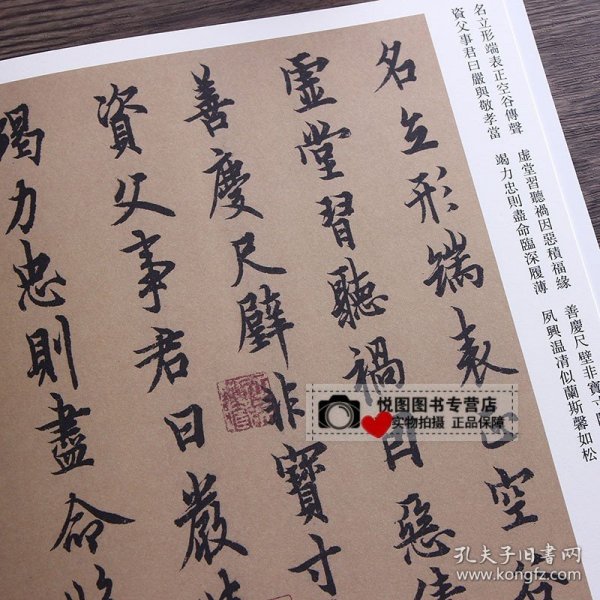 名立形端表正空谷傳聲 虛堂習聽禍因惡積福緣 善慶尺壁非寶寸
資父事君曰嚴與敬孝當 竭力忠則盡命臨深履薄 夙興温清似蘭斯馨如松
名立形端表正空谷
虛堂習聽禍因惡積
善慶尺璧非寶寸
資父事君曰嚴與
竭力忠則盡命臨
悦图图书专营店
实物拍摄 正品保障
孔夫子旧书网
www.kongfz.com